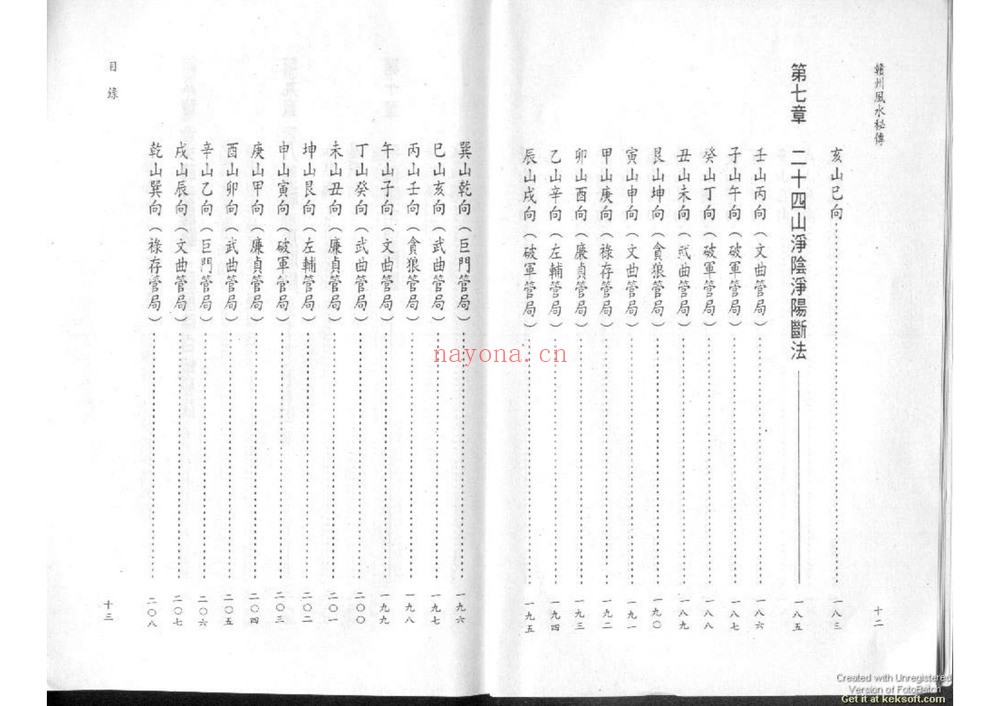 贛州風水秘傳
亥山巳向 一八三
第七章 二十四山淨陰淨陽斷法 一八五
壬山丙向（文曲管局） 一八六
子山午向（破軍管局） 一八七
癸山丁向（破軍管局） 一八八
丑山未向（武曲管局） 一八九
艮山坤向（貪狼管局） 一九〇
寅山申向（文曲管局） 一九一
甲山庚向（祿存管局） 一九二
卯山酉向（廉貞管局） 一九三
乙山辛向（左輔管局） 一九四
辰山戌向（破軍管局） 一九五
十二
巽山乾向（巨門管局） 一九六
巳山亥向（武曲管局） 一九七
丙山壬向（貪狼管局） 一九八
午山子向（文曲管局） 一九九
丁山癸向（武曲管局） 二〇〇
未山丑向（廉貞管局） 二〇一
坤山艮向（左輔管局） 二〇二
申山寅向（破軍管局） 二〇三
庚山甲向（廉貞管局） 二〇四
酉山卯向（武曲管局） 二〇五
辛山乙向（巨門管局） 二〇六
戌山辰向（文曲管局） 二〇七
乾山巽向（祿存管局） 二〇八
目錄
十三
nayona.cn
Created with Unregistered
Version of FotoBatch
Get it at keksoft.com